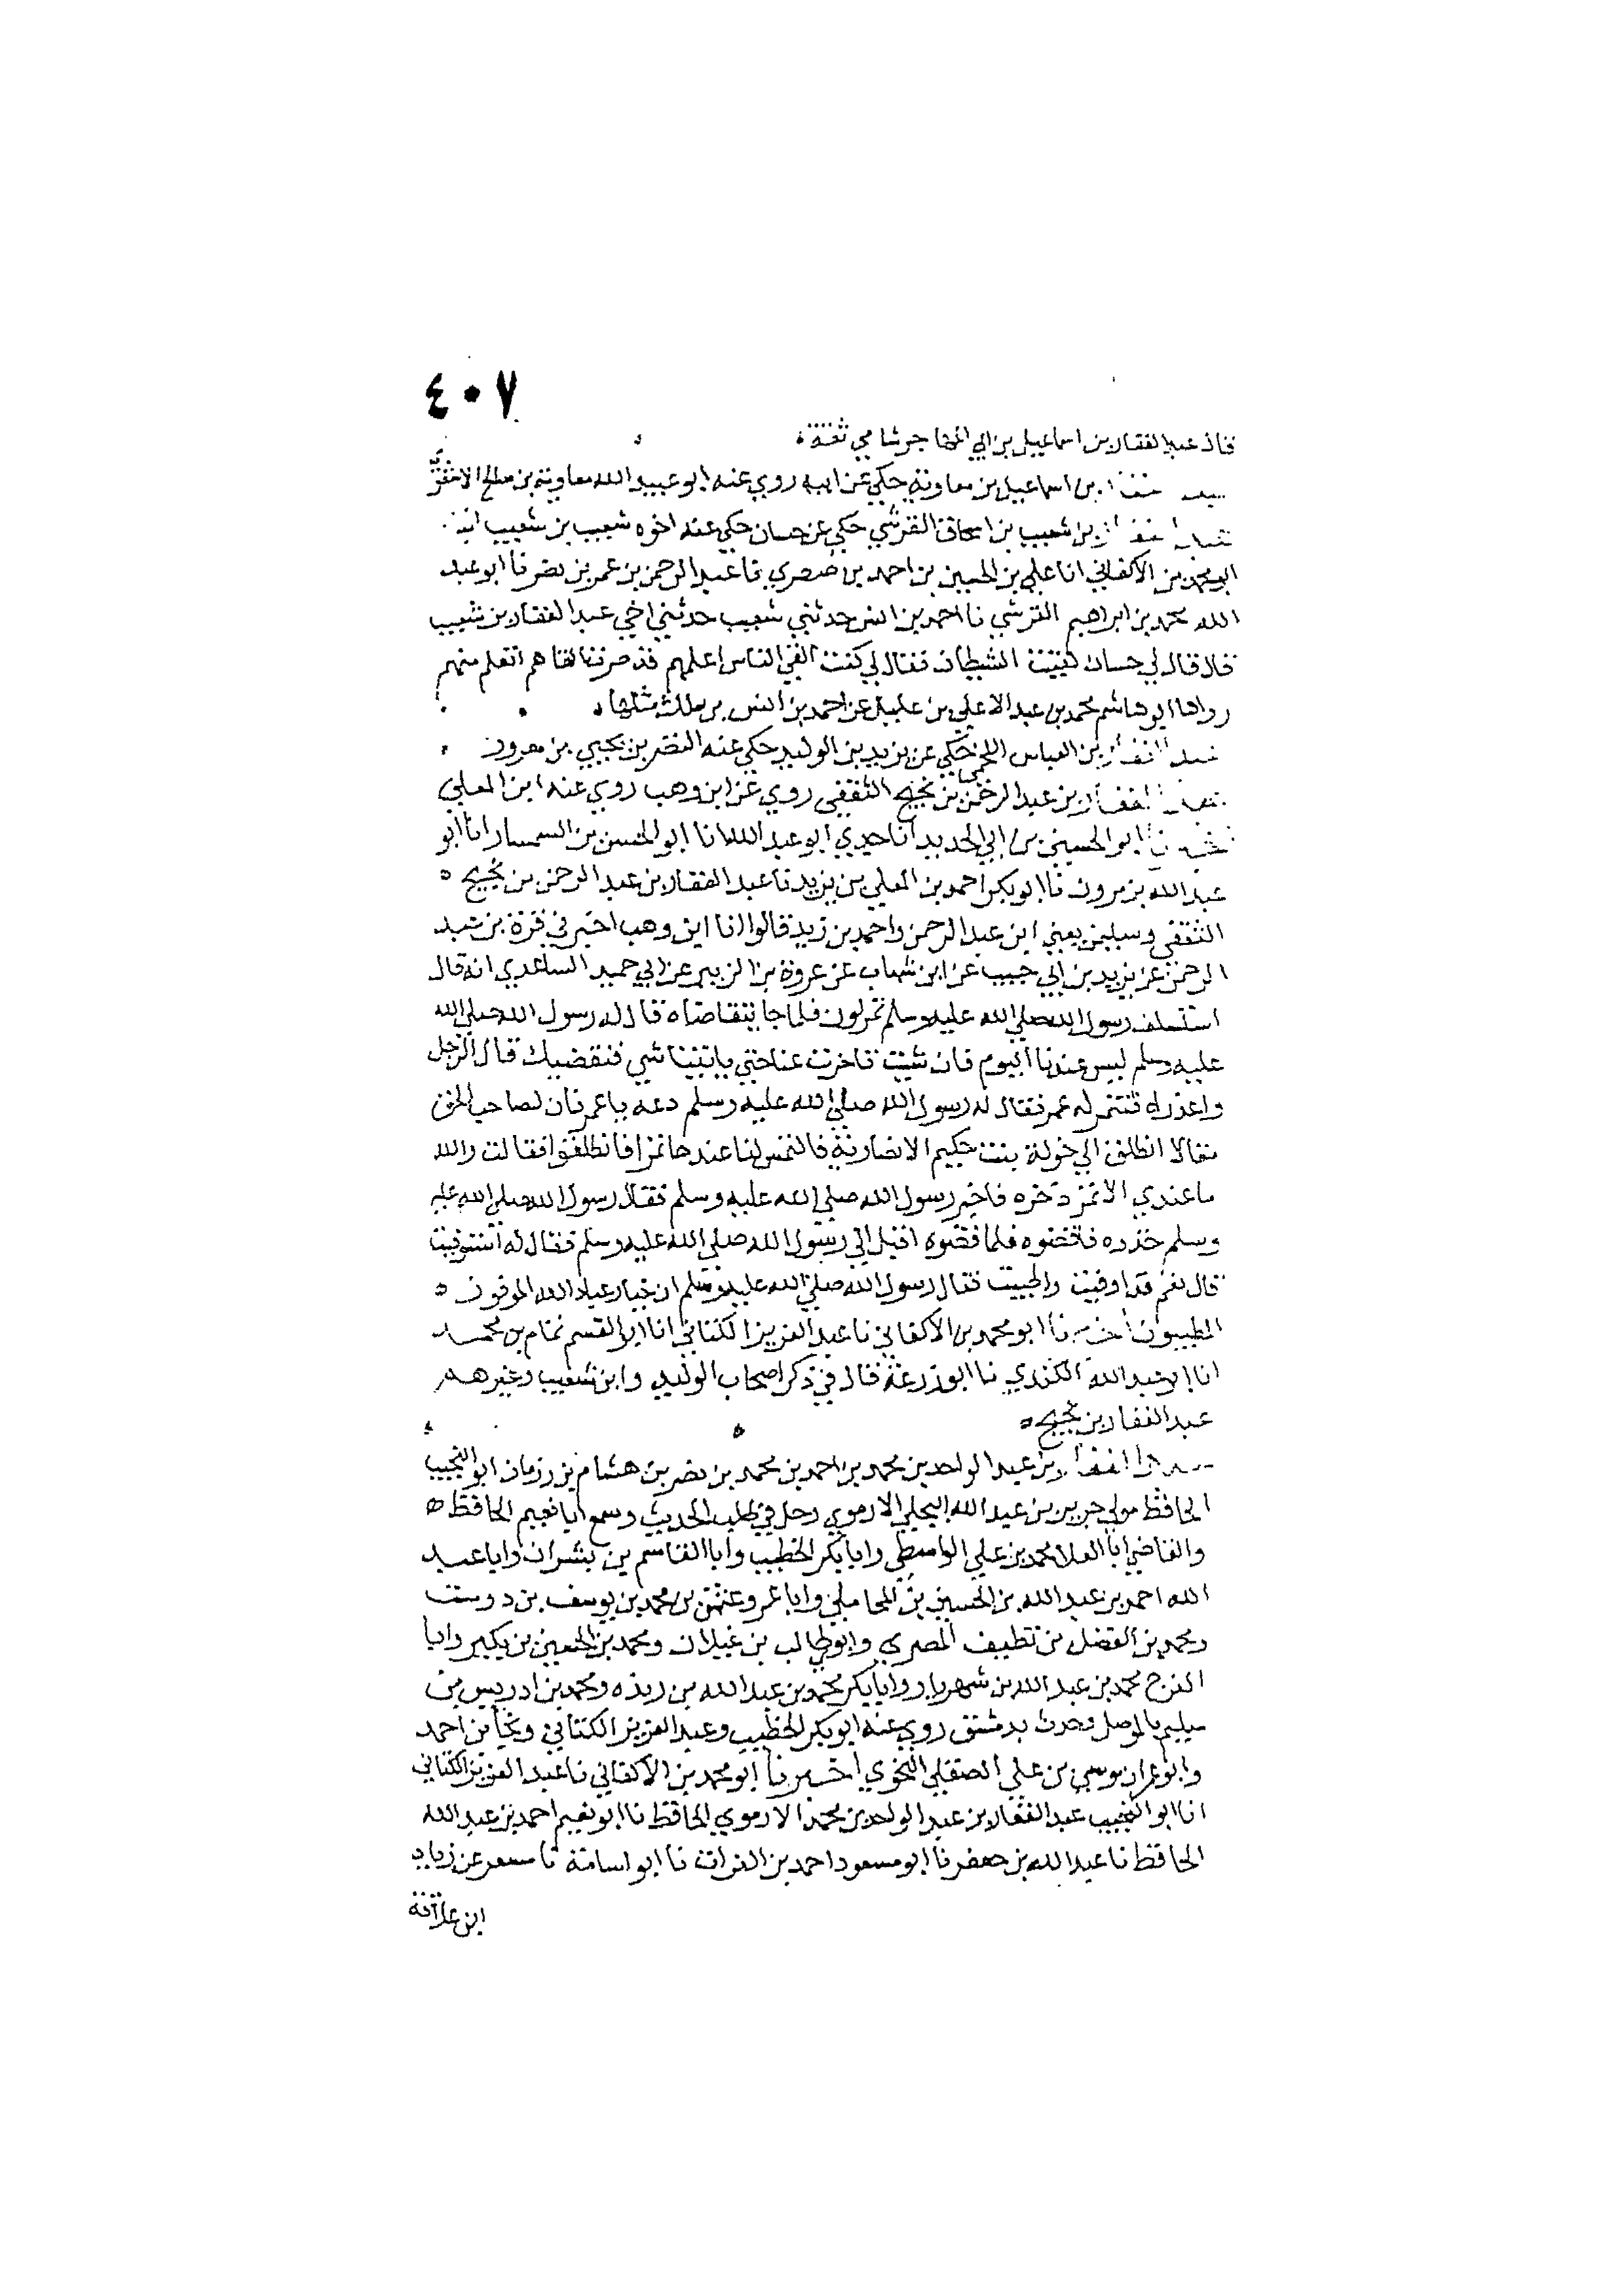 ٤٠٧
قال عبد الغفار بن اسماعيل بن ابي المهاجر شامي ثقة
بن اسماعيل بن معاوية حكي عن ابيه روي عنه ابو عبيد الله معاوية بن صالح الاشعري
بن شعيب بن اسحاق القرشي حكي عن حسان حكي عنه اخوه شعيب بن شعيب
ابو محمد بن الاكفاني انا علي بن الحسين بن احمد بن صصري نا عبد الرحمن بن عمر بن نصر نا ابو عبد
الله محمد بن ابراهيم القرشي نا احمد بن انس حدثني شعيب حدثني اخي عبد الغفار بن شعيب
قال قال لي حسان لقيت الشيطان فقال لي كنت القي الناس اعلمهم فقد صرت القاهم اتعلم منهم
رواها ابو هاشم محمد بن عبد الاعلي بن عليل عن احمد بن انس بن ملك مثلها
بن العباس اللخمي حكي عن يزيد بن الوليد حكي عنه النضر بن يحيي بن معرور
بن عبد الرحمن بن نجيح الثقفي روي عن ابن وهب روي عنه ابن المعلي
ابو الحسين بن ابي الحديد انا جدي ابو عبد الله انا ابو الحسن بن السمسار انا ابو
عبد الله بن مرون نا ابو بكر احمد بن المعلي بن يزيد نا عبد الغفار بن عبد الرحمن بن نجيح
الثقفي وسليمن يعني ابن عبد الرحمن واحمد بن زيد قالوا انا ابن وهب اخبرني قرة بن عبد
الرحمن عن يزيد بن ابي حبيب عن ابن شهاب عن عروة بن الزبير عن ابي حميد الساعدي انه قال
استسلف رسول الله صلي الله عليه وسلم تمر لون فلما جا يتقاضاه قال له رسول الله صلي الله
عليه وسلم ليس عندنا اليوم فان شيت تاخرت عنا حتي ياتينا شي فنقضيك قال الرجل
واعذراه فتنمر له عمر فقال له رسول الله صلي الله عليه وسلم دعه يا عمر فان لصاحب الحق
مقالا انطلق الي خولة بنت حكيم الانصارية فالتمس لنا عندها تمرا فانطلقوا فقالت والله
ما عندي الا تمر ذخره فاخبر رسول الله صلي الله عليه وسلم فقال رسول الله صلي الله عليه
وسلم خذوه فاقضوه فلما قضوه اقبل الي رسول الله صلي الله عليه وسلم فقال له استوفيت
قال نعم قد اوفيت واطيبت فقال رسول الله صلي الله عليه وسلم ان خيار عباد الله الموفون
المطيبون اخبرنا ابو محمد بن الاكفاني نا عبد العزيز الكتاني انا ابو القسم تمام بن محمد
انا ابو عبد الله الكندي نا ابو زرعة قال في ذكر اصحاب الوليد وابن شعيب وغيرهم
عبد الغفار بن نجيح
عبد الغفار بن عبد الواحد بن محمد بن احمد بن محمد بن نصر بن هشام بن رزمان ابو النجيب
الحافظ مولي جرير بن عبد الله البجلي الارموي رحل في طلب الحديث وسمع ابا نعيم الحافظ
والقاضي ابا العلا محمد بن علي الواسطي وابا بكر الخطيب وابا القاسم بن بشران وابا عبد
الله احمد بن عبد الله بن الحسين بن المحاملي وابا عمرو عثمن بن محمد بن يوسف بن دوست
ومحمد بن الفضل بن نظيف المصري وابو طالب بن غيلان ومحمد بن الحسين بن بكير وابا
الفرج محمد بن عبد الله بن شهريار وابا بكر محمد بن عبد الله بن ريذه ومحمد بن ادريس بن
سليم بالموصل وحدث بدمشق روي عنه ابو بكر الخطيب وعبد العزيز الكتاني ونجا بن احمد
وابو عمران موسي بن علي الصقلي النحوي اخبرنا ابو محمد بن الاكفاني نا عبد العزيز الكتاني
انا ابو النجيب عبد الغفار بن عبد الواحد بن محمد الارموي الحافظ نا ابو نعيم احمد بن عبد الله
الحافظ نا عبد الله بن جعفر نا ابو مسعود احمد بن الفرات نا ابو اسامة نا مسعر عن زياد
ابن علاقة